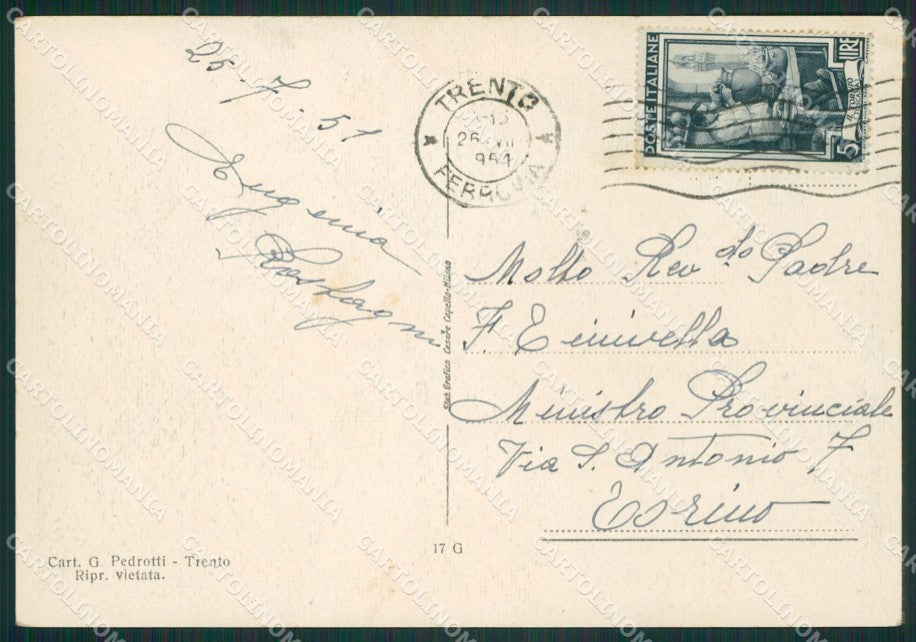 25-7-51
Eugenia
TRENTO
26 VII
951
FERROVIA
POSTE ITALIANE
LIRE
5
Molto Rev do Padre
F.
Ministro Provinciale
Via S. Antonio 7
Stab. Grafico Cesare Capello-Milano
17 G
Cart. G. Pedrotti - Trento
Ripr. vietata.
CARTOLINOMANIA